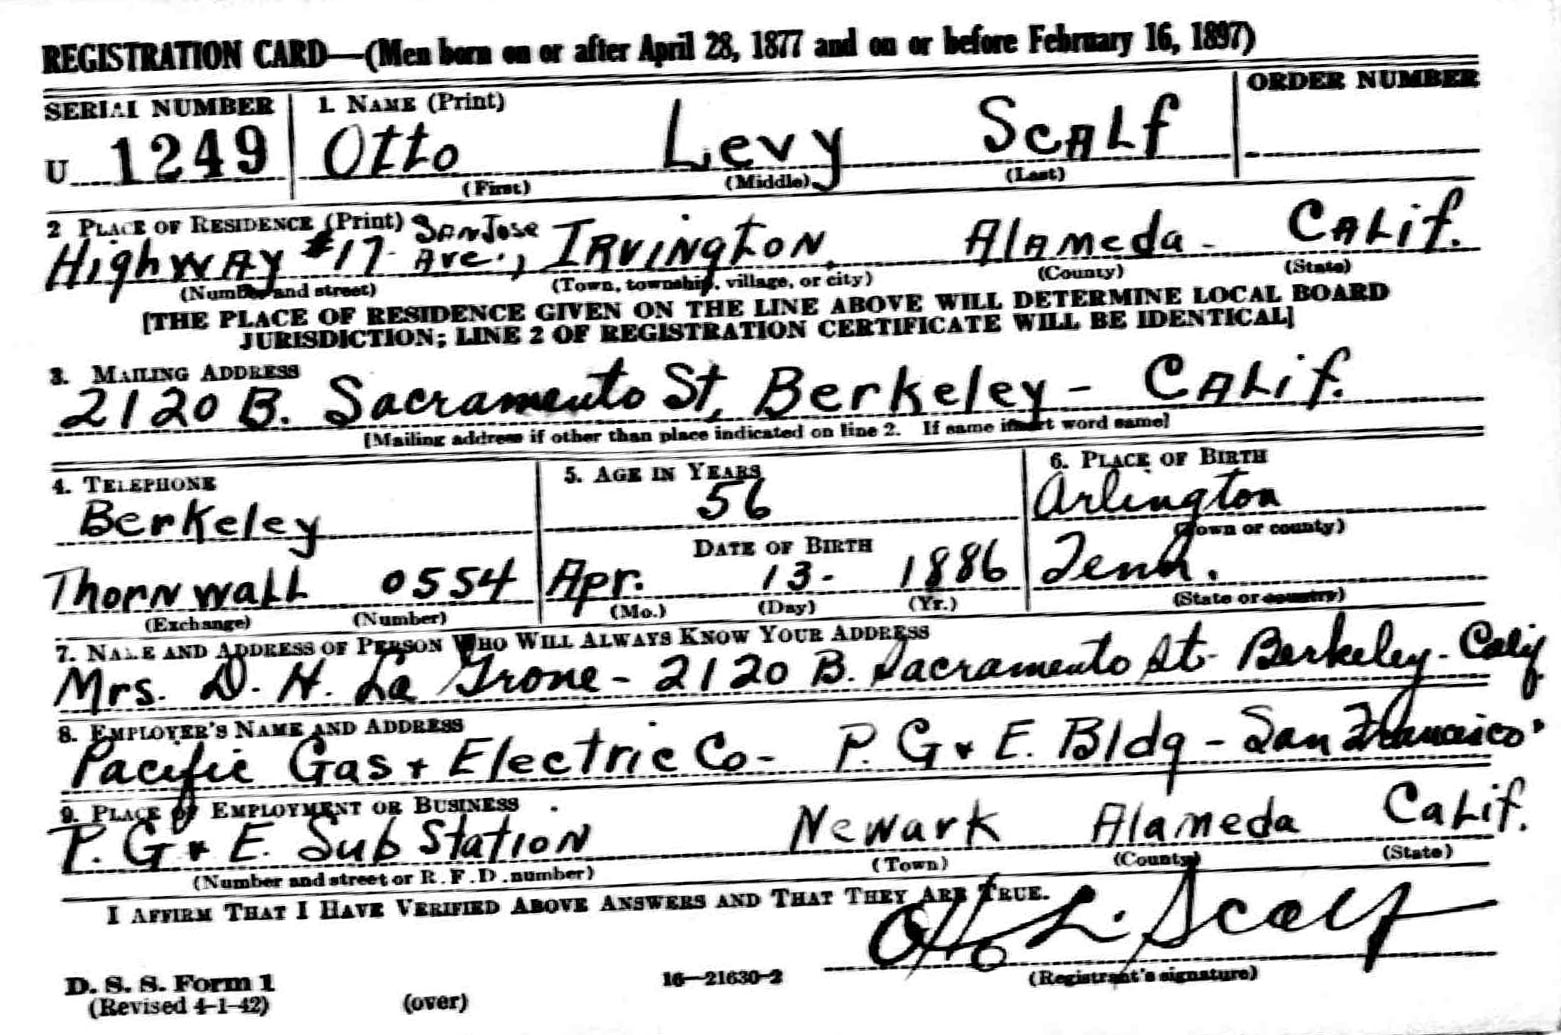 REGISTRATION CARD—(Men born on or after April 28, 1877 and on or before February 16, 1897)
SERIAL NUMBER 1. NAME (Print) ORDER NUMBER
U 1249 Otto Levy Scalf
(First) (Middle) (Last)
2 PLACE OF RESIDENCE (Print)
Highway #17 San Jose Ave., Irvington, Alameda - Calif.
(Number and street) (Town, township, village, or city) (County) (State)
[THE PLACE OF RESIDENCE GIVEN ON THE LINE ABOVE WILL DETERMINE LOCAL BOARD
JURISDICTION; LINE 2 OF REGISTRATION CERTIFICATE WILL BE IDENTICAL]
3. MAILING ADDRESS
2120 B. Sacramento St, Berkeley - Calif.
[Mailing address if other than place indicated on line 2. If same insert word same]
4. TELEPHONE 5. AGE IN YEARS 6. PLACE OF BIRTH
Berkeley 56 Arlington
DATE OF BIRTH (Town or county)
Thornwall 0554 Apr. 13 - 1886 Tenn.
(Exchange) (Number) (Mo.) (Day) (Yr.) (State or country)
7. NAME AND ADDRESS OF PERSON WHO WILL ALWAYS KNOW YOUR ADDRESS
Mrs. D. H. La Grone - 2120 B. Sacramento St - Berkeley - Calif
8. EMPLOYER'S NAME AND ADDRESS
Pacific Gas + Electric Co - P. G + E. Bldg - San Francisco
9. PLACE OF EMPLOYMENT OR BUSINESS
P. G + E. Sub Station Newark Alameda Calif.
(Number and street or R. F. D. number) (Town) (County) (State)
I AFFIRM THAT I HAVE VERIFIED ABOVE ANSWERS AND THAT THEY ARE TRUE.
Otto L. Scalf
D. S. S. Form 1 16—21630-2 (Registrant's signature)
(Revised 4-1-42) (over)